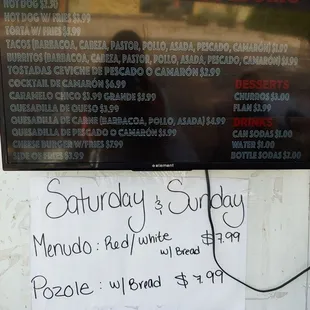 HOT DOG $2.99
HOT DOG W/ FRIES $3.99
TORTA W/ FRIES $7.99
TACOS (BARBACOA, CABEZA, PASTOR, POLLO, ASADA, PESCADO, CAMARON) $1.99
BURRITOS (BARBACOA, CABEZA, PASTOR, POLLO, ASADA, PESCADO, CAMARON)
TOSTADAS CEVICHE DE PESCADO O CAMARÓN $2.99
COCKTAIL DE CAMARÓN $6.99
CARAMELO CHICO $3.99 GRANDE $5.99
QUESADILLA DE QUESO $3.99
QUESADILLA DE CARNE (BARBACOA, POLLO, ASADA) $4.99
QUESADILLA DE PESCADO O CAMARÓN $5.99
CHEESE BURGER W/FRIES $5.99
SIDE OF FRIES
DESSERTS
CHURROS $3.00
FLAN $3.99
DRINKS
CAN SODAS $1.00
WATER $1.00
BOTTLE SODAS $2.00
element
Saturday & Sunday
Menudo: Red/White $7.99
w/ Bread
Pozole: w/ Bread $7.99